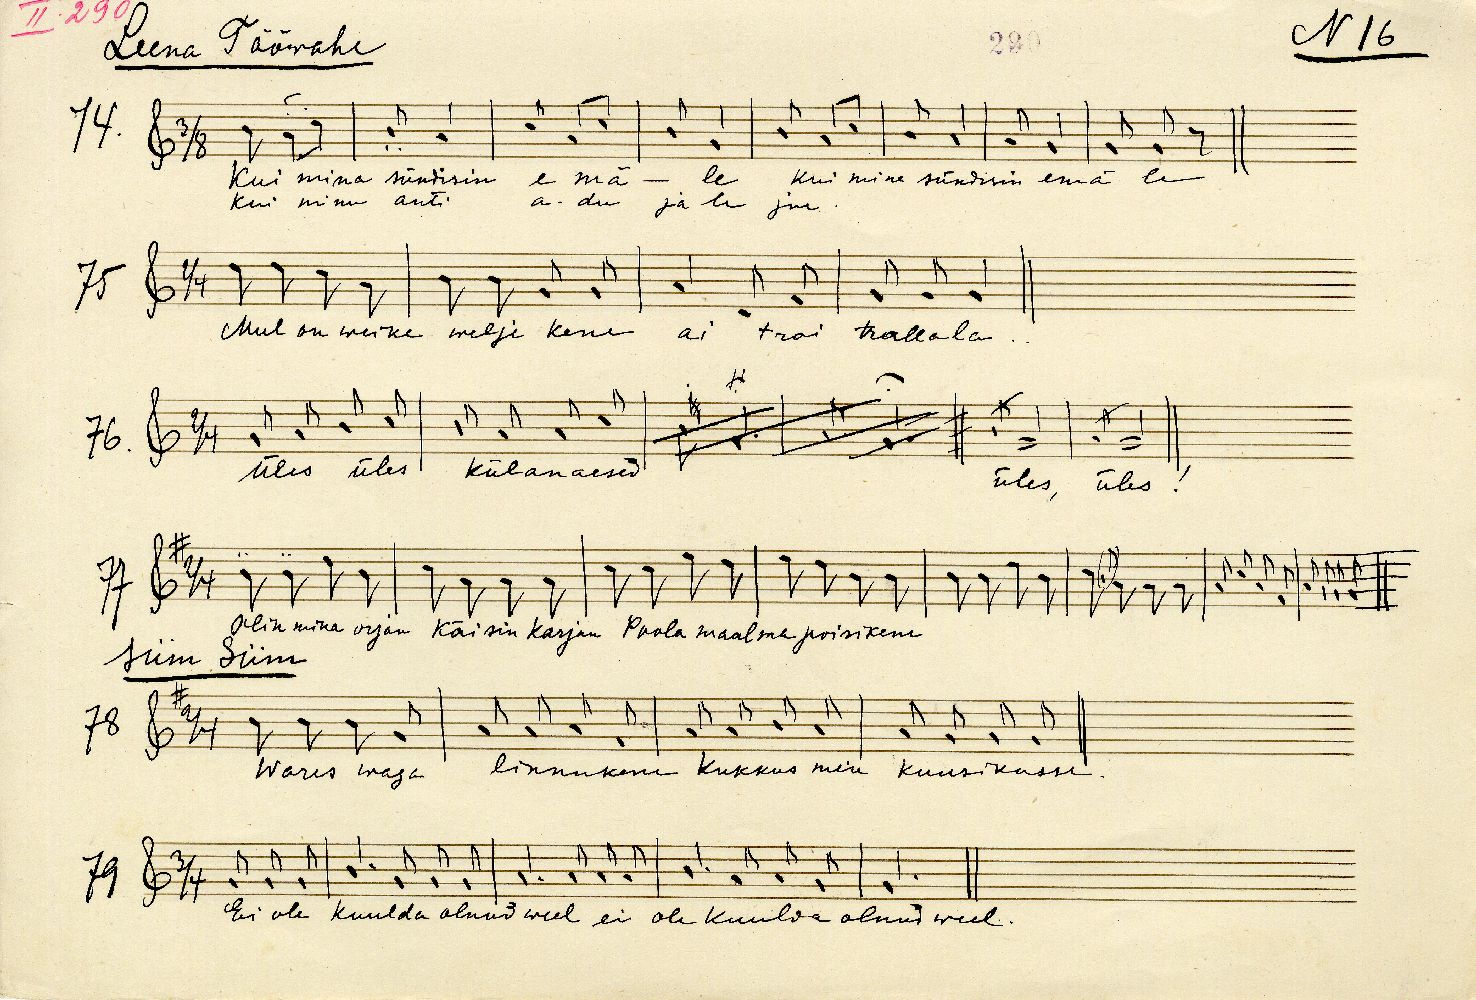 II. 290
Leena Tööwahe 290 N 16
74. 3/8
Kui mina sündisin e mä – le kui mina sündisin emä le
kui minu anti a-du ja le juu.
75 2/4
Mul on weike welje kene ai troi trallala..
76. 2/4
Üles üles külanaesed üles, üles!
77 2/4
Olin mina orjan Käisin karjan Poola maalma poisikene
Siim Siim
78 2/4
Wares waga linnukene kukkus meie kuusikusse.
79 3/4
Ei ole kuulda olnud weel ei ole kuulda olnud weel.